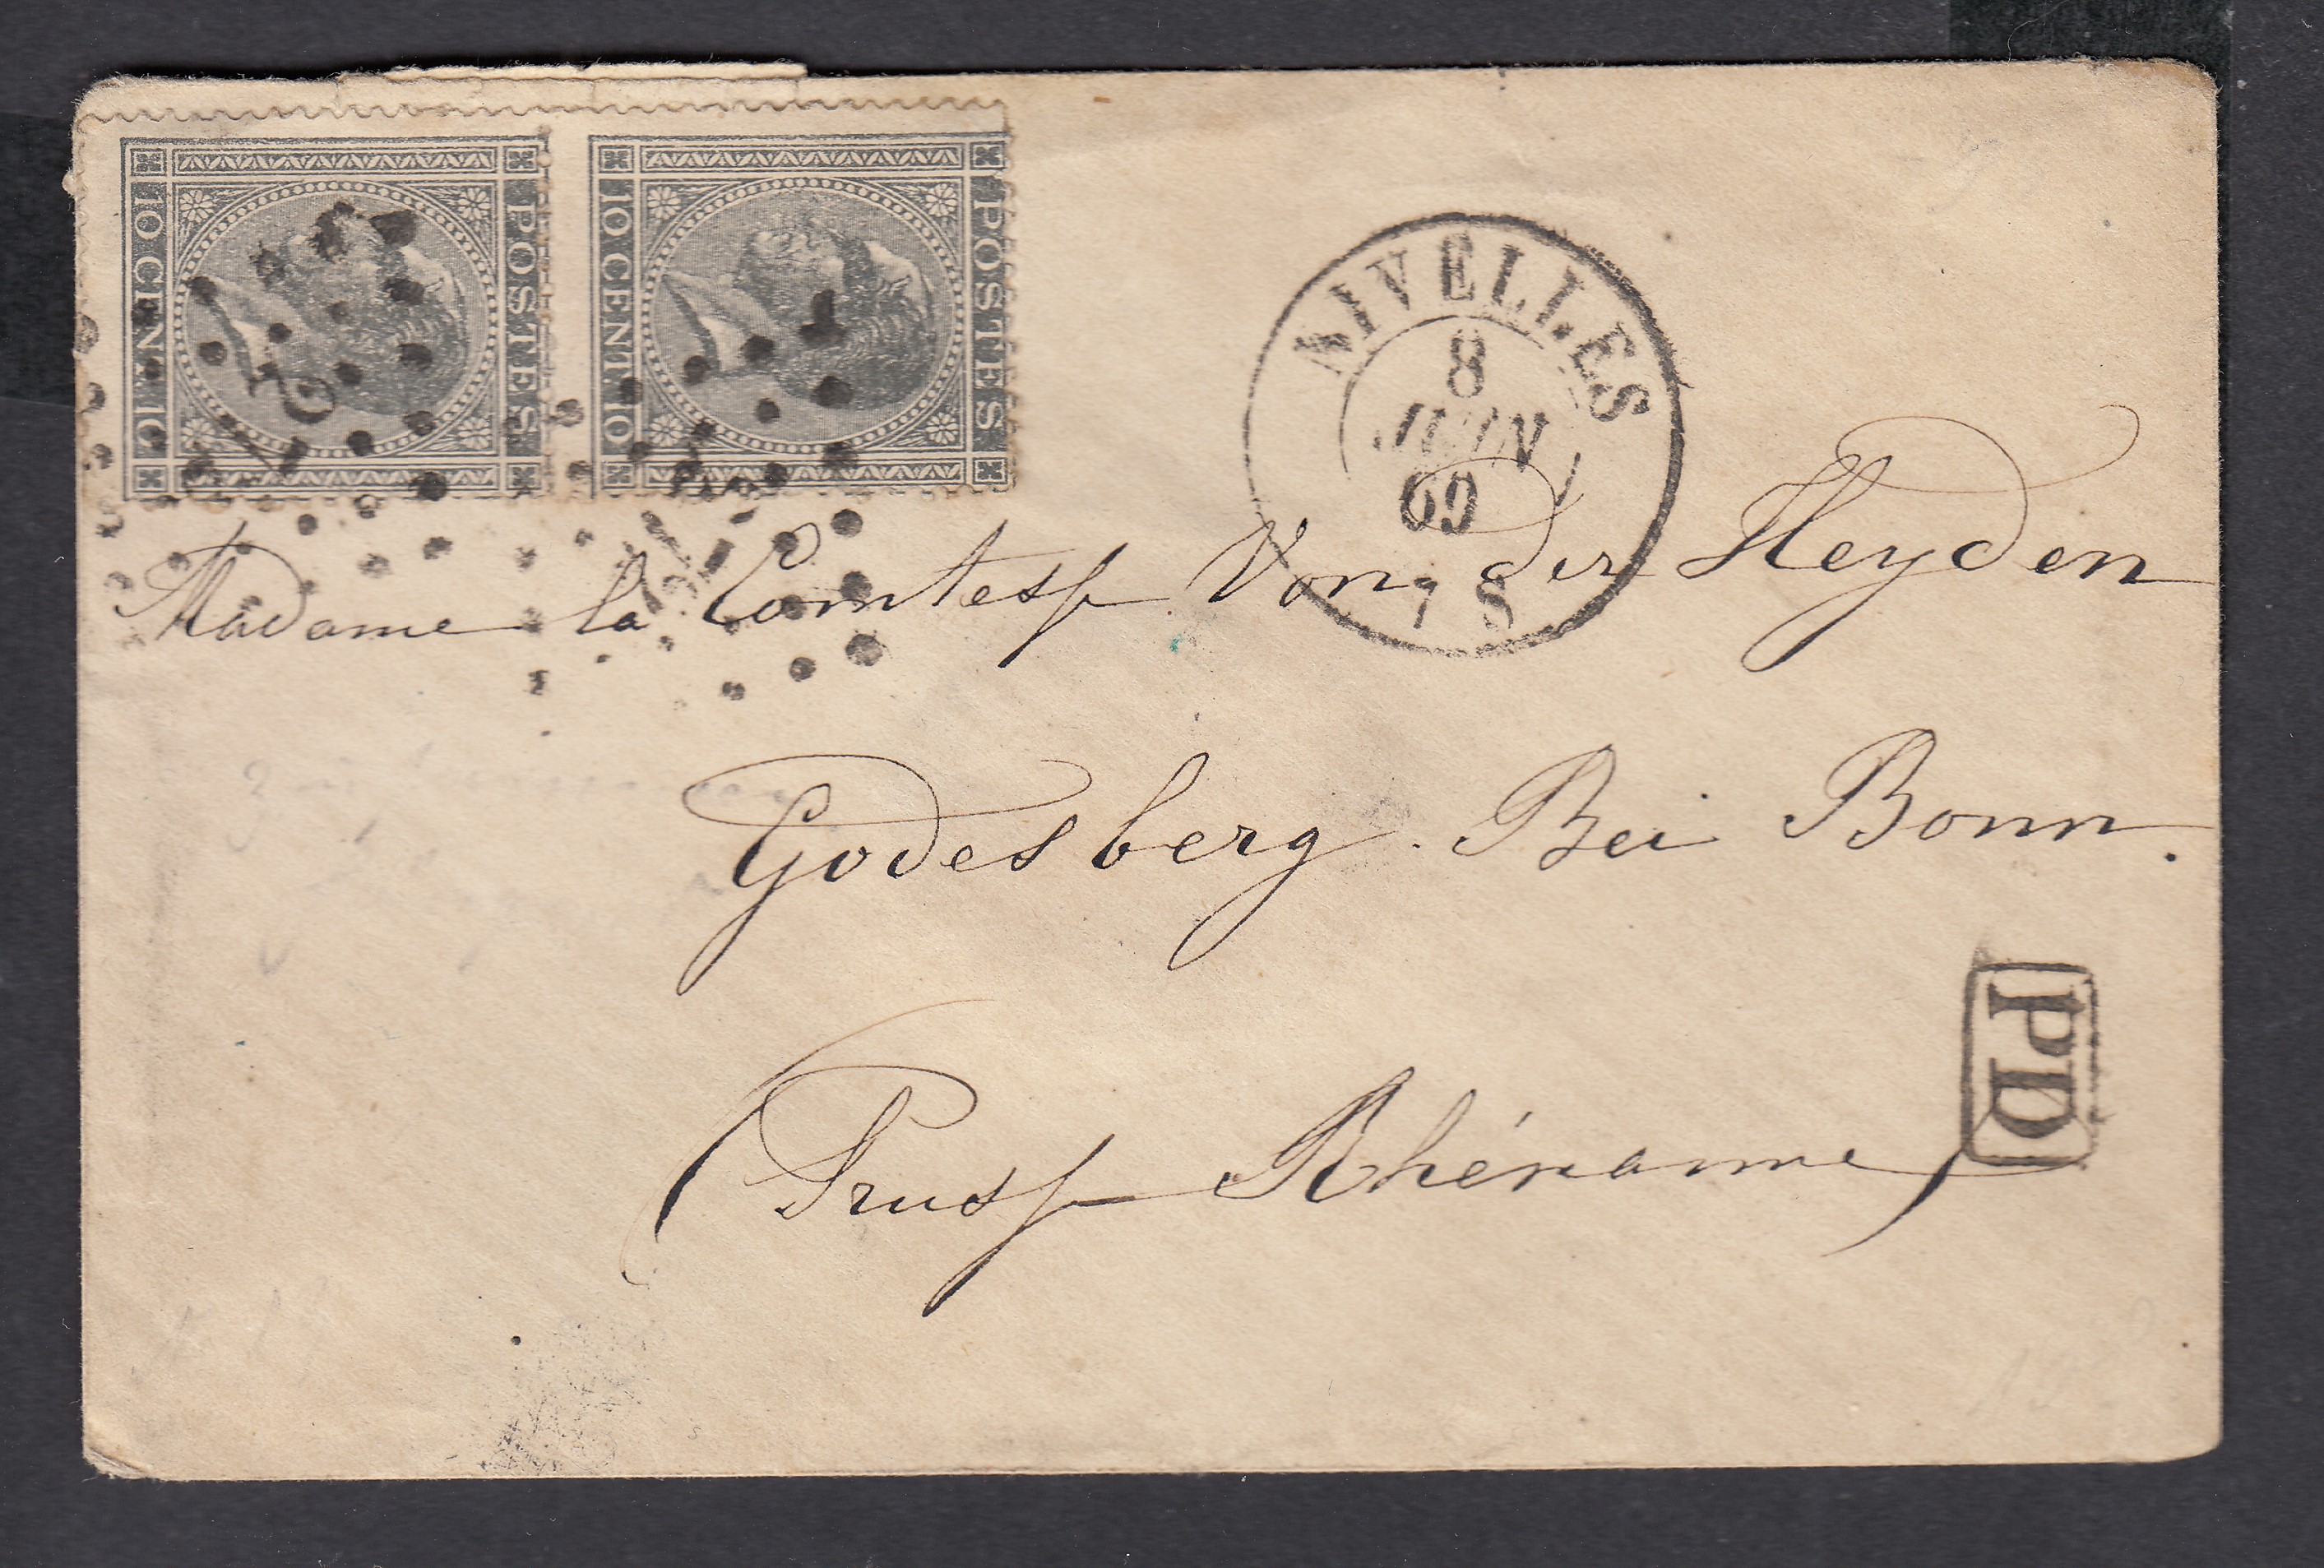 POSTES
10 CENT. 10
POSTES
10 CENT. 10
NIVELLES
8
JUIN
69
7 S
Madame la Comtesse Von der Heyden
Godesberg. Bei Bonn.
PD
(Prusse Rhénanne)